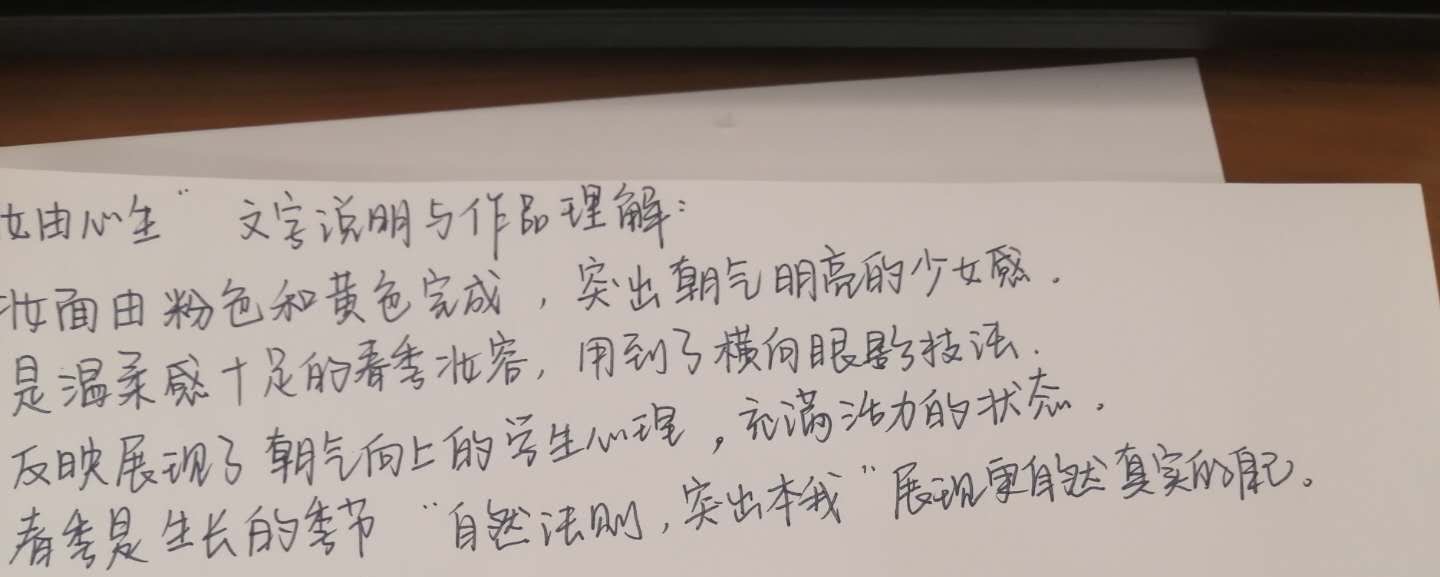 妆由心生” 文字说明与作品理解:
妆面由粉色和黄色完成，突出朝气明亮的少女感.
是温柔感十足的春季妆容，用到了横向眼影技法.
反映展现了朝气向上的学生心理，充满活力的状态.
春季是生长的季节 “自然法则，突出本我” 展现更自然真实的自己。